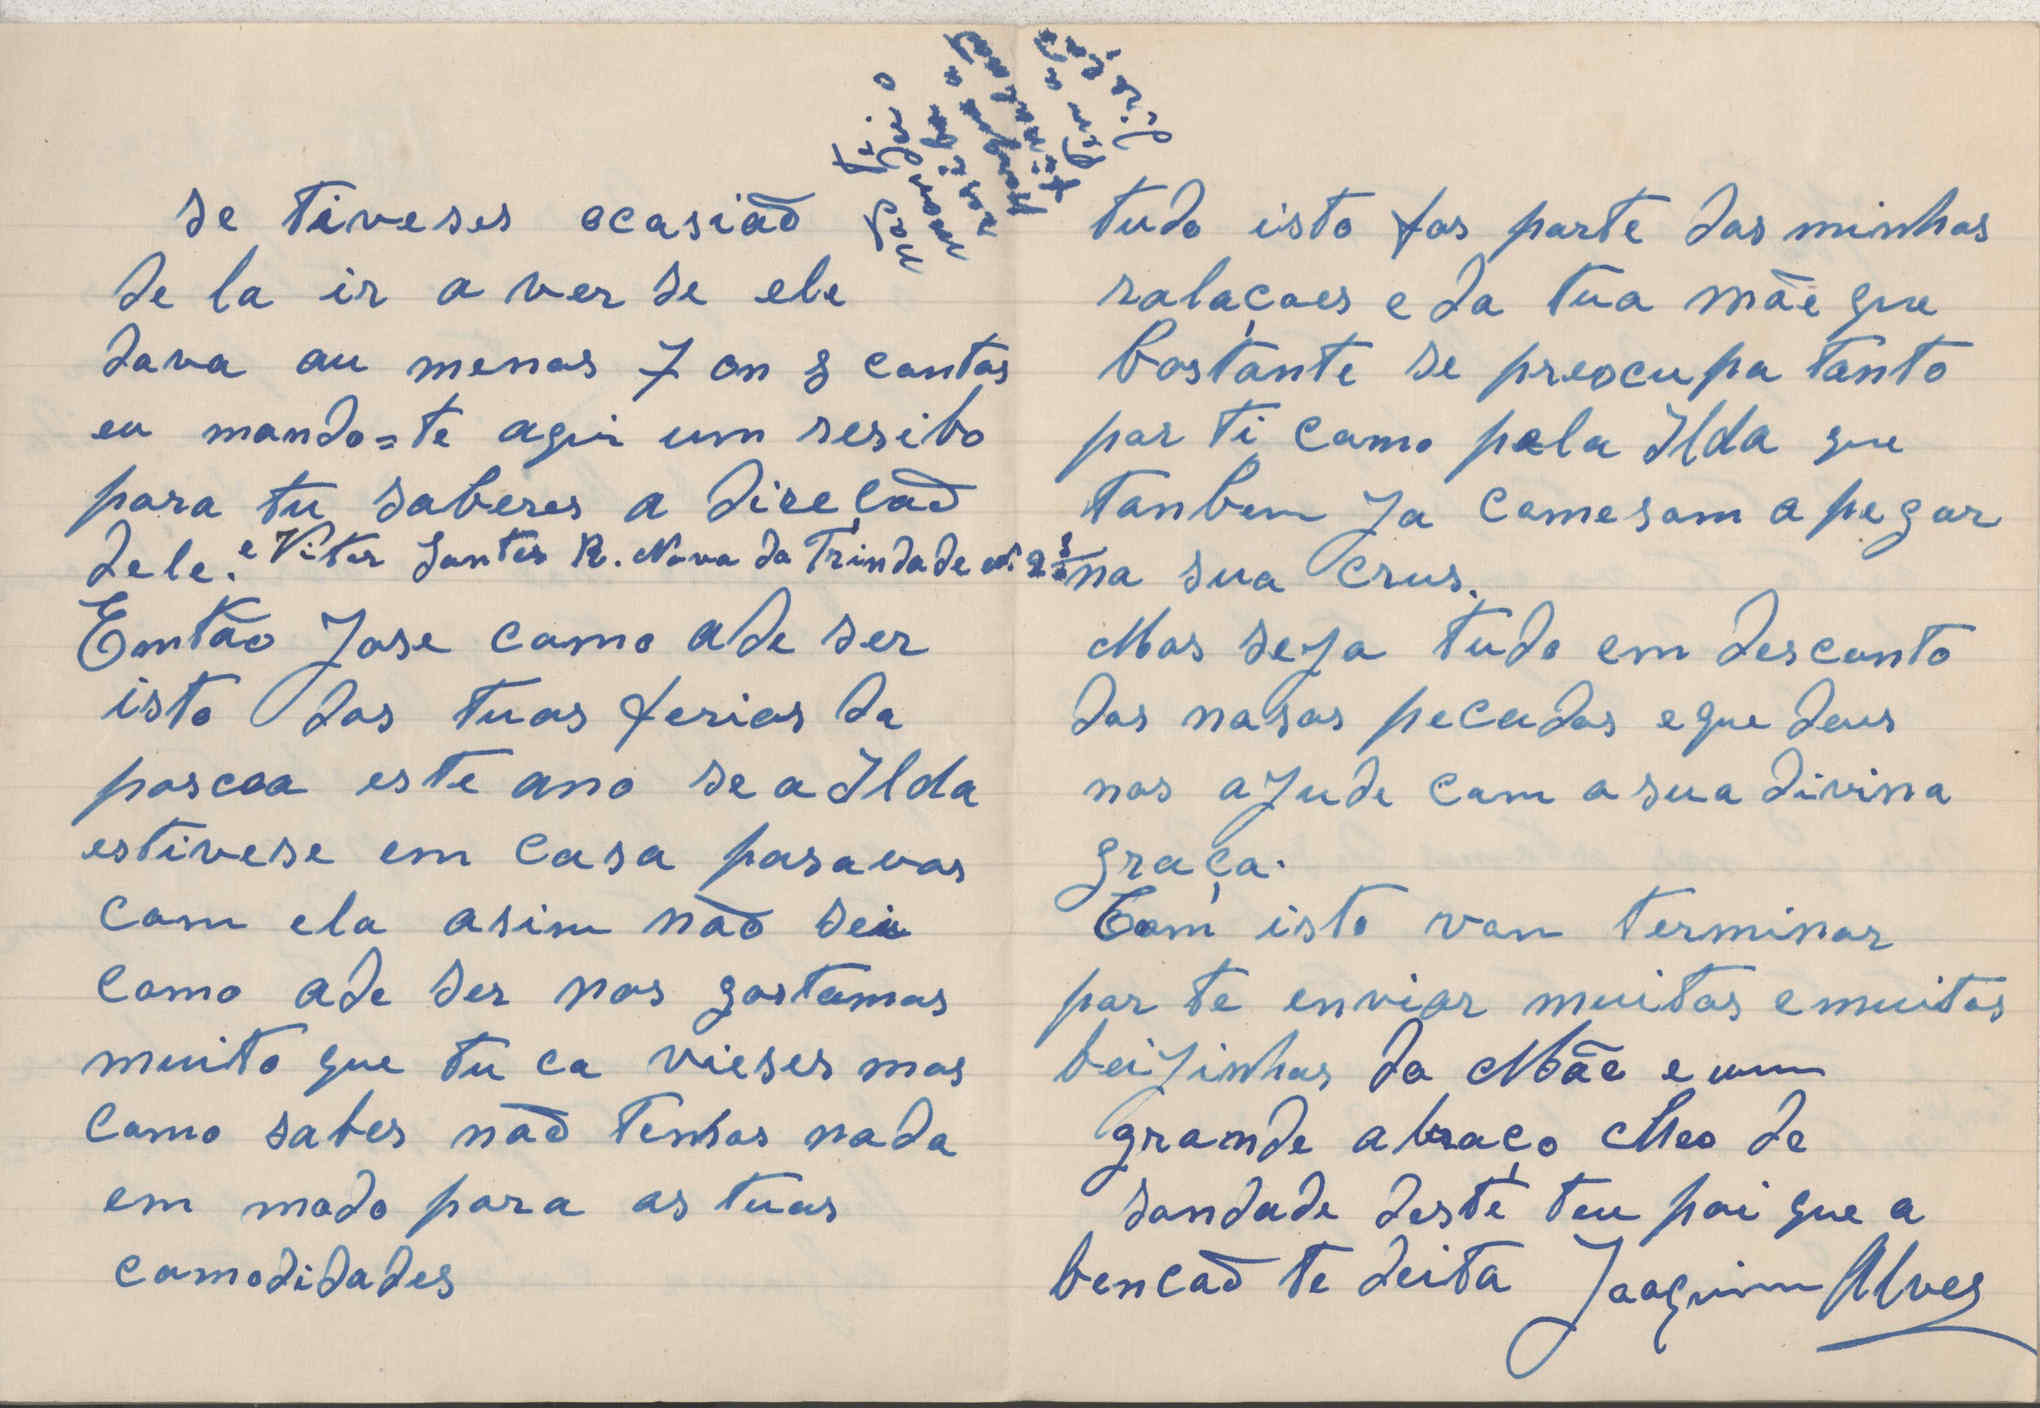 se tiveses ocasiaõ
de la ir a ver se ele
dava au menos 7 ou 8 contos
eu mando=te aqui um resibo
para tu saberes a direçaõ
dele. e Vitor Santos R. Nova da Trindade
Emtão Jose como ade ser
isto das tuas ferias da
pascoa este ano se a Ilda
estivese em casa pasavas
com ela asim naõ sei
como ade ser nos gostamos
muito que tu ca vieses mas
como sabes naõ tenhos nada
em modo para as tuas
comodidades
tudo isto fas parte das minhas
ralaçoes e da tua mãe que
bastante se preocupa tanto
por ti como pela Ilda que
tanbem ja comesam a pegar
na sua crus.
Mas seja tudo em desconto
dos nosos pecados e que deus
nos ajude com a sua divina
graça.
Com isto vou terminar
por te enviar muitos e muitos
beijinhos da Mãe e um
grande abraço Meo de
saudade deste teu pai que a
bencaõ te deita Joaquim Alves